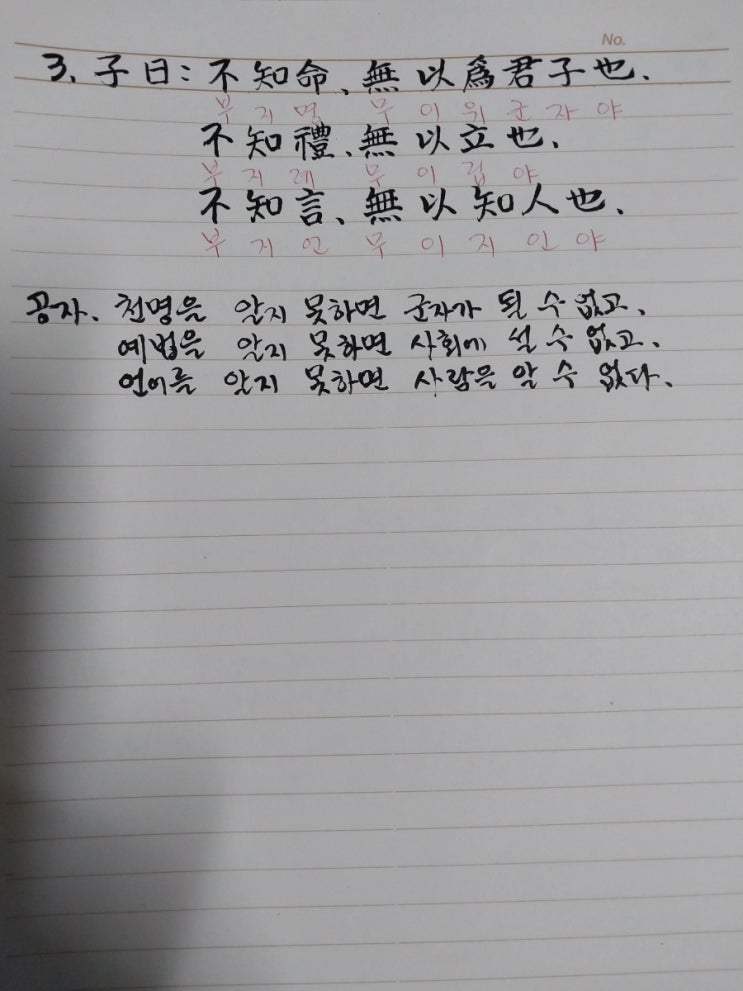 No.
3. 子曰: 不知命、無以爲君子也.
부지명 무이위군자야
不知禮、無以立也.
부지례 무이립야
不知言、無以知人也.
부지언 무이지인야
공자. 천명을 알지 못하면 군자가 될 수 없고.
예법을 알지 못하면 사회에 설 수 없고.
언어를 알지 못하면 사람을 알 수 없다.